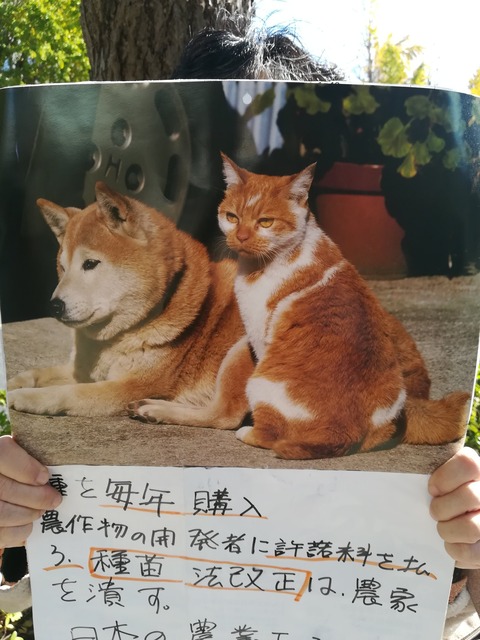 HO
種を毎年購入
農作物の開発者に許諾料を払
う、種苗法改正は、農家
を潰す。
日本の農業